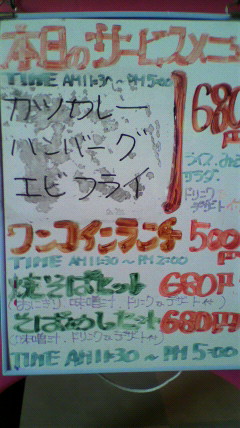 本日のサービスメニュー
TIME AM11:30〜PM5:00
カツカレー
ハンバーグ
エビフライ
680円
ライス、
サラダ、
ドリンク
デザート
ワンコインランチ 500円
TIME AM11:30〜PM2:00
焼そばセット 680円
(おにぎり、味噌汁、ドリンク、デザート付)
そばめしセット 680円
(味噌汁、ドリンク、デザート付)
TIME AM11:30〜PM5:00